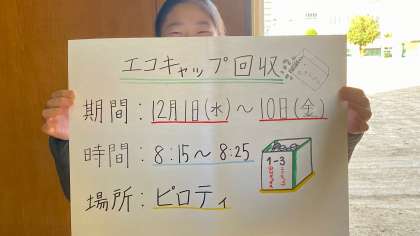 エコキャップ回収
期間：12月1日(水)〜10日(金)
時間：8:15〜8:25
1-3
場所：ピロティ